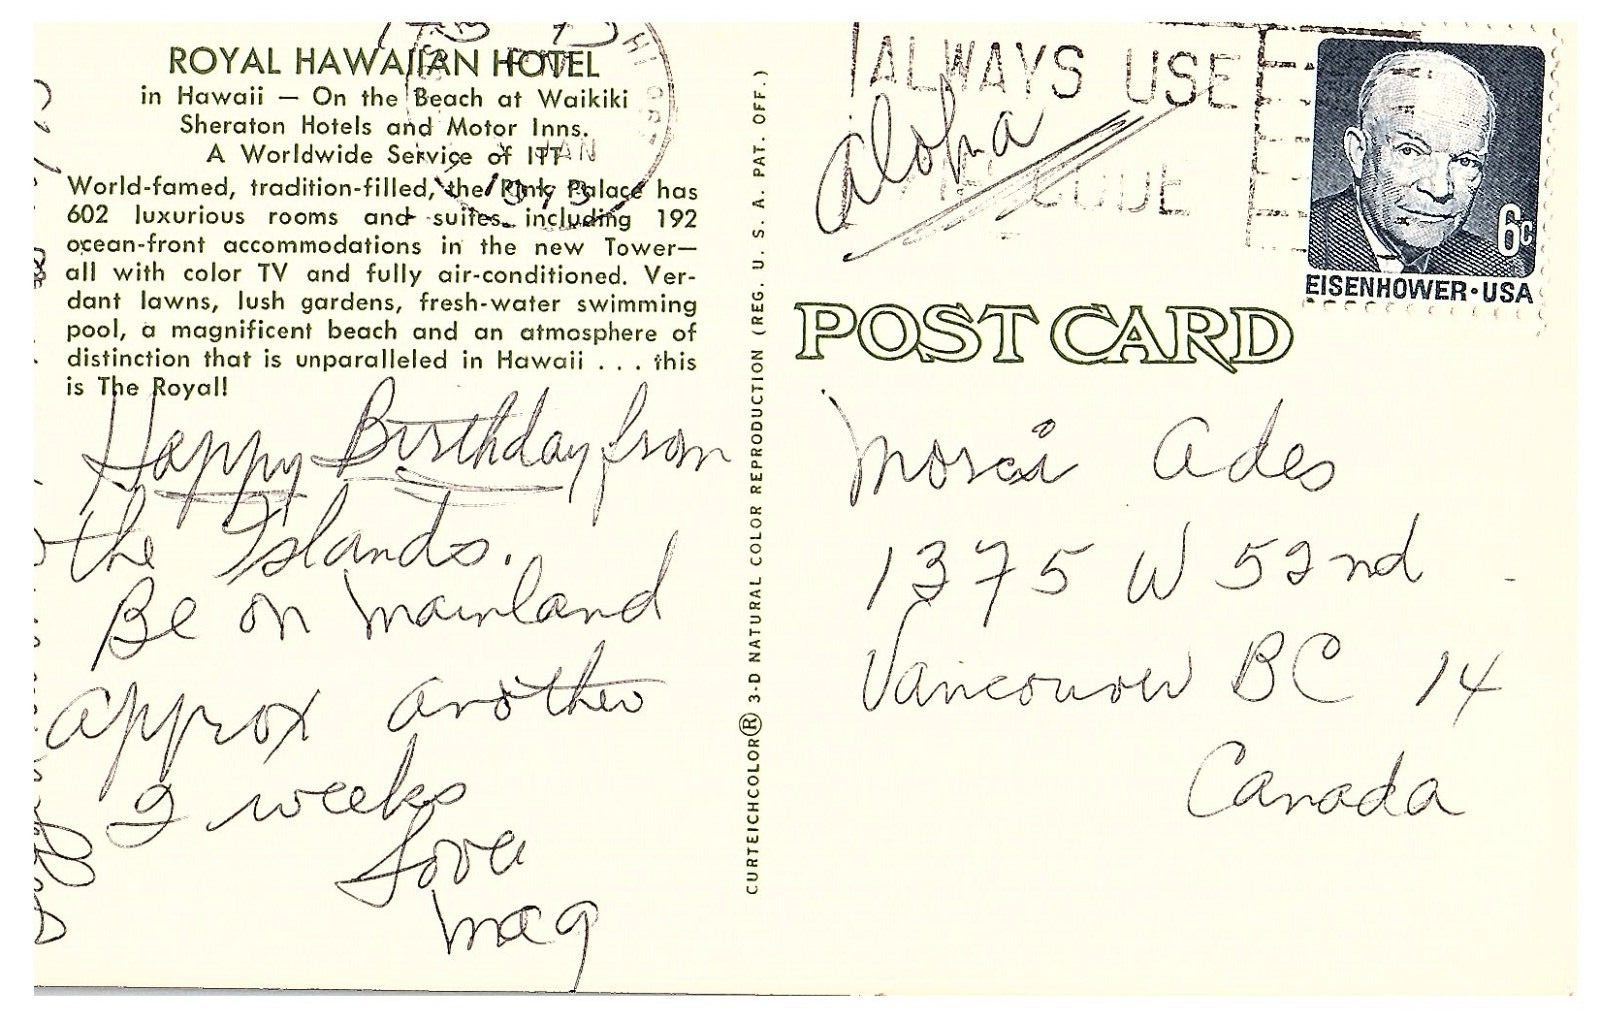 ROYAL HAWAIIAN HOTEL
in Hawaii — On the Beach at Waikiki
Sheraton Hotels and Motor Inns.
A Worldwide Service of ITT
World-famed, tradition-filled, the Pink Palace has
602 luxurious rooms and suites including 192
ocean-front accommodations in the new Tower—
all with color TV and fully air-conditioned. Ver-
dant lawns, lush gardens, fresh-water swimming
pool, a magnificent beach and an atmosphere of
distinction that is unparalleled in Hawaii . . . this
is The Royal!
Happy Birthday from
the Islands.
Be on mainland
approx another
2 weeks
Love
Meg
CURTEICHCOLOR® 3-D NATURAL COLOR REPRODUCTION (REG. U. S. A. PAT. OFF.)
ALWAYS USE
CODE
Aloha
6c
EISENHOWER·USA
POST CARD
Ades
1375 W 52nd
Vancouver BC 14
Canada